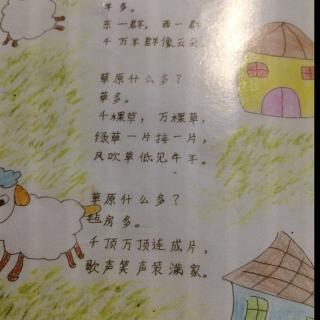 羊多。
东一群，西一群
千万羊群像云朵
草原什么多？
草多。
千棵草，万棵草，
绿草一片接一片，
风吹草低见牛羊。
草原什么多？
毡房多。
千顶万顶连成片，
歌声笑声装满家。